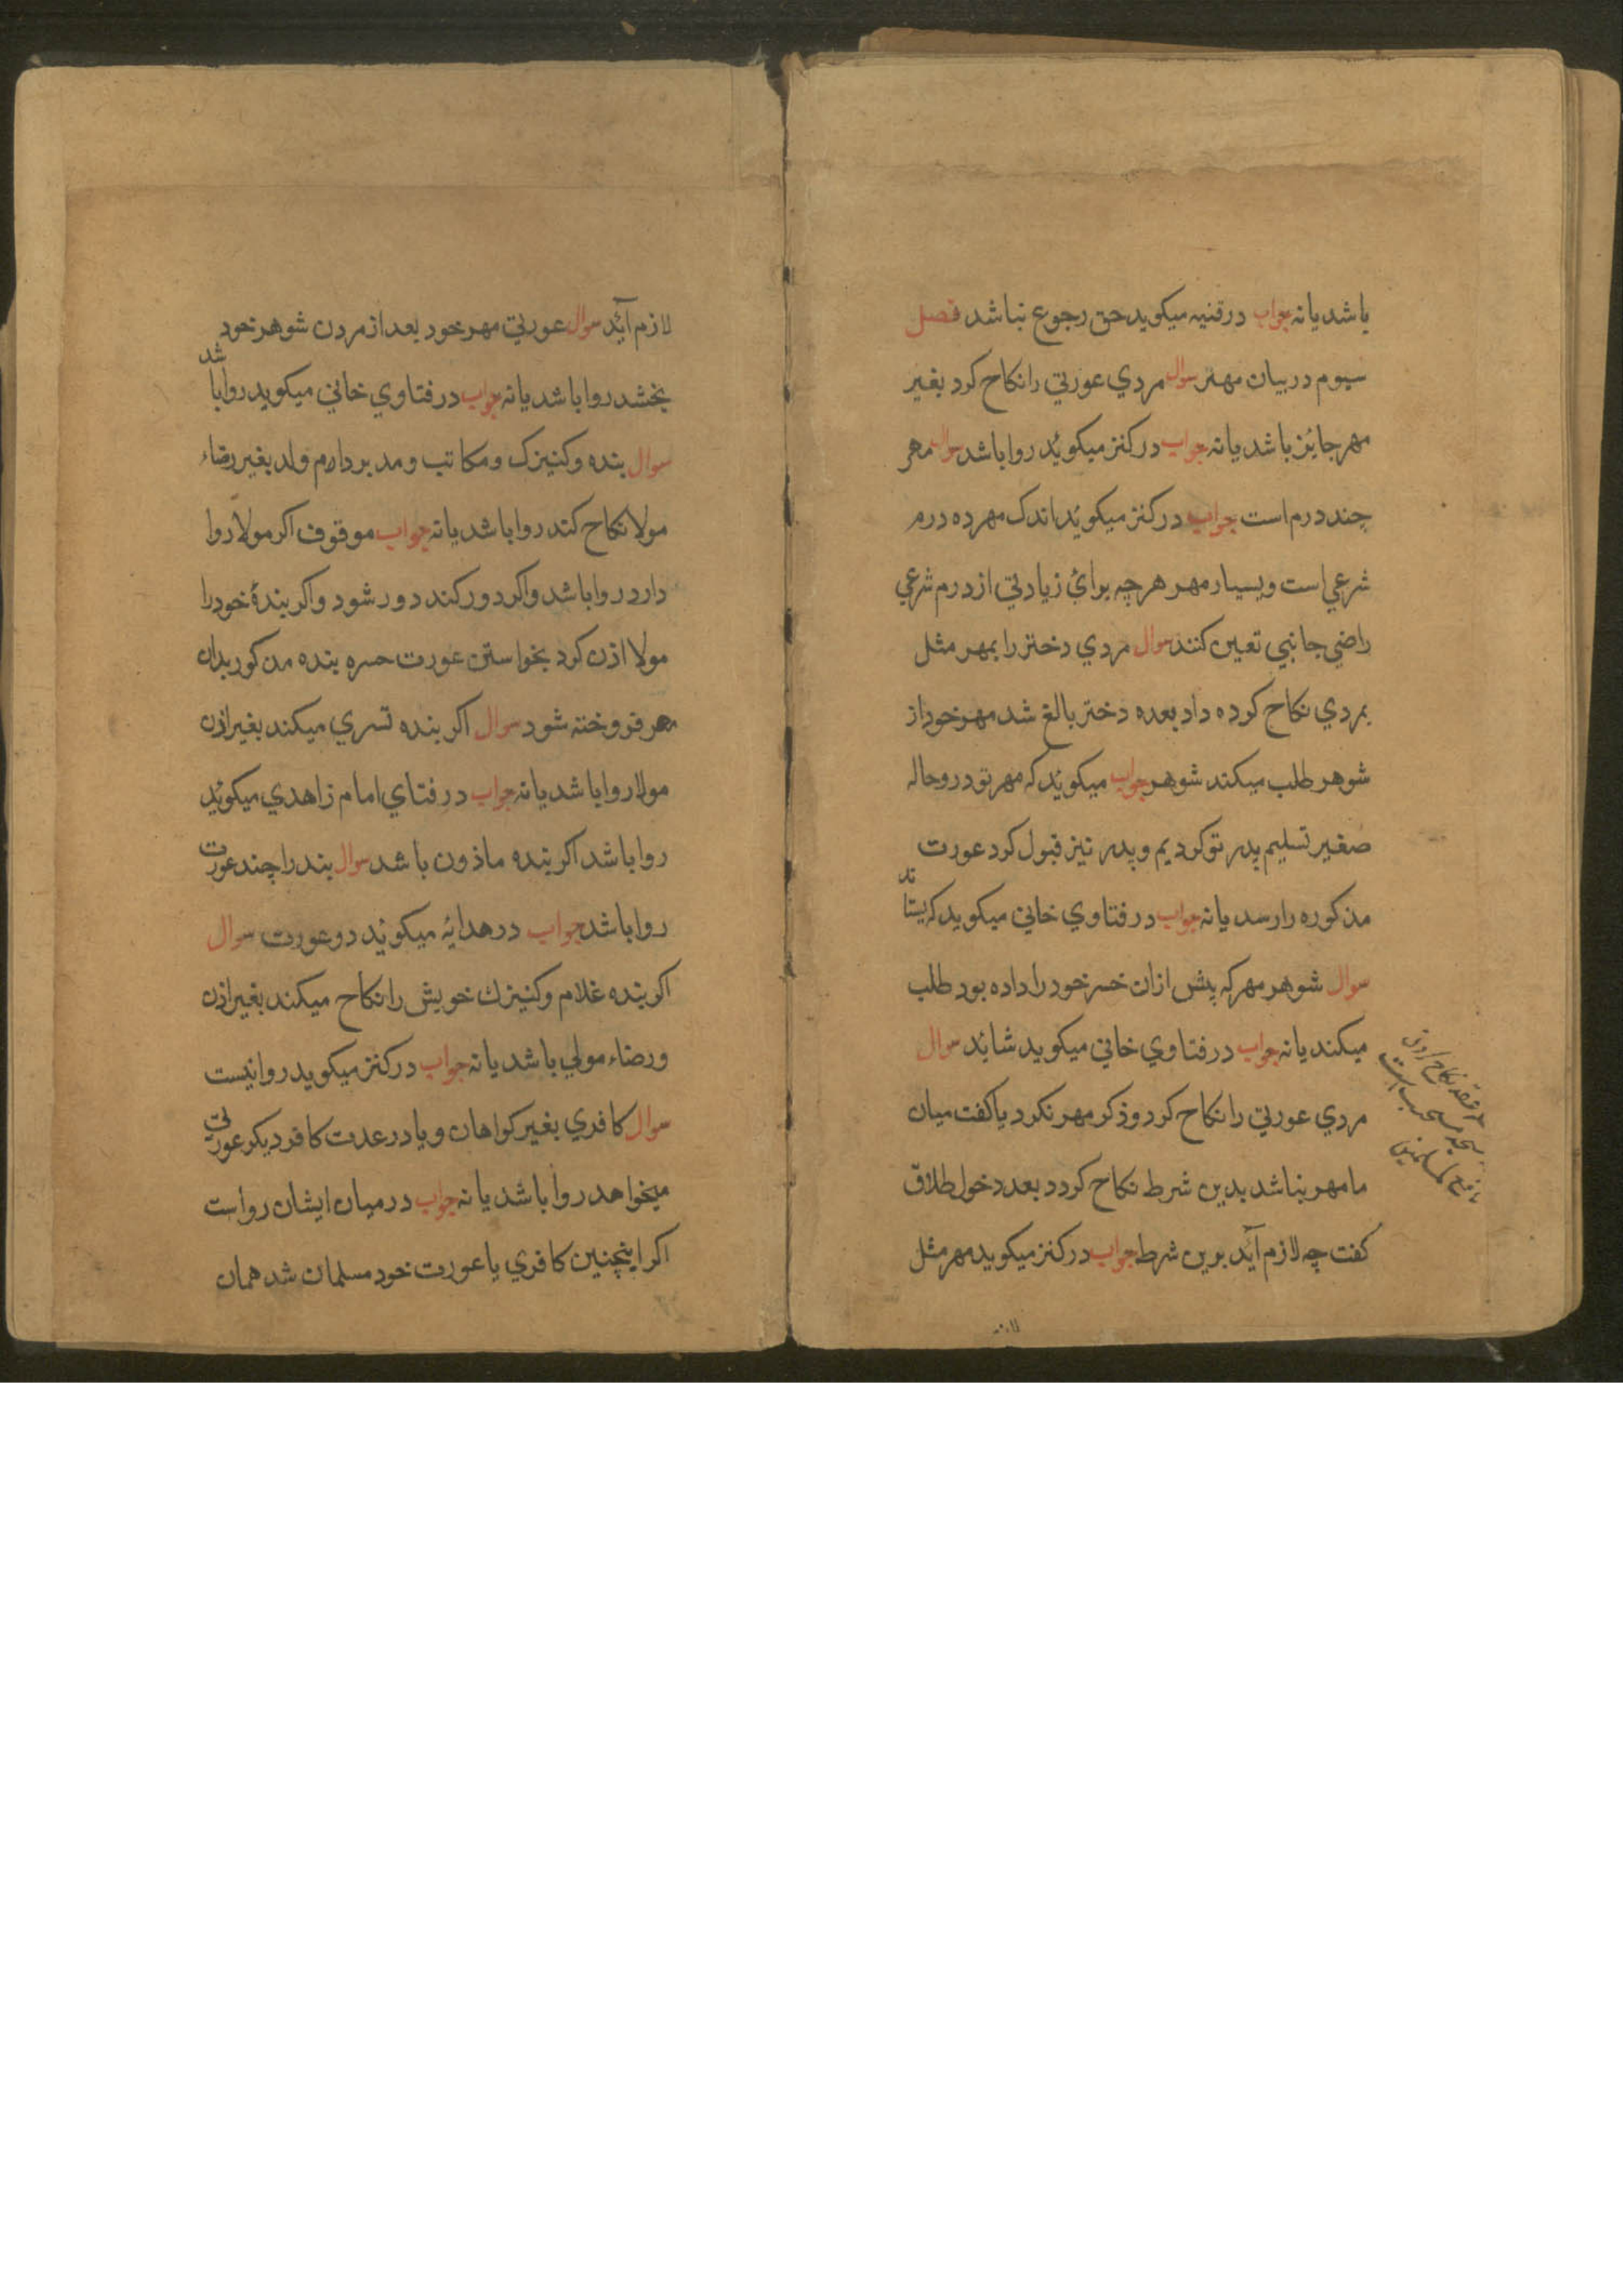 باشد یا نه جواب در قنیه میکوید حق رجوع نباشد فصل
سیوم در بیان مهر سوال مردي عورتي را نکاح کرد بغیر
مهر جایز باشد یا نه جواب در کنز میکوئد روا باشد سوال مهر
چند درم است جواب در کنز میکوئد اندک مهر ده درم
شرعي است و بسیار مهر هرچه برائ زیادتي از درم شرعي
راضي جانبي تعین کنند سوال مردي دختر را بمهر مثل
بمردي نکاح کرده داد بعده دختر بالغ شد مهر خود از
شوهر طلب میکند شوهر جواب میکوئد که مهر تو در وحاله
صغیر تسلیم پدر تو کردیم و پدر نیز قبول کرد عورت
مذکوره را رسد یا نه جواب در فتاوي خاني میکوید که بستاند
سوال شوهر مهر که پیش ازان خسر خود را داده بود طلب
میکند یا نه جواب در فتاوي خاني میکوید شائد سوال
مردي عورتي را نکاح کرد و ذکر مهر نکرد یا کفت میان
ما مهر نباشد بدین شرط نکاح کردد بعد دخول طلاق
کفت چه لازم آئد برین شرط جواب در کنز میکوید مهر مثل
لازم آئد سوال عورتي مهر خود بعد از مردن شوهر خود
بخشد روا باشد یا نه جواب در فتاوي خاني میکوید روا باشد
سوال بنده و کنیزک و مکاتب و مدبر دارم ولد بغیر رضاء
مولا نکاح کند روا باشد یا نه جواب موقوف اکر مولا روا
دارد روا باشد و اکر دور کند دور شود و اکر بندۀ خود را
مولا اذن کرد بخواستن عورت حره بنده مذکور بدان
مهر فروخته شود سوال اکر بنده تسري میکند بغیر اذن
مولا روا باشد یا نه جواب در فتاي امام زاهدي میکوئد
روا باشد اکر بنده ماذون باشد سوال بند را چند عورت
روا باشد جواب در هدایه میکوئد دو عورت سوال
اکر بنده غلام و کنیزك خویش را نکاح میکند بغیر اذن
و رضاء مولي باشد یا نه جواب در کنز میکوید روا نیست
سوال کافري بغیر کواهان و یا در عدت کافر دیکر عورتي
میخواهد روا باشد یا نه جواب در میان ایشان رواست
اکر اینچنین کافري با عورت خود مسلمان شد همان